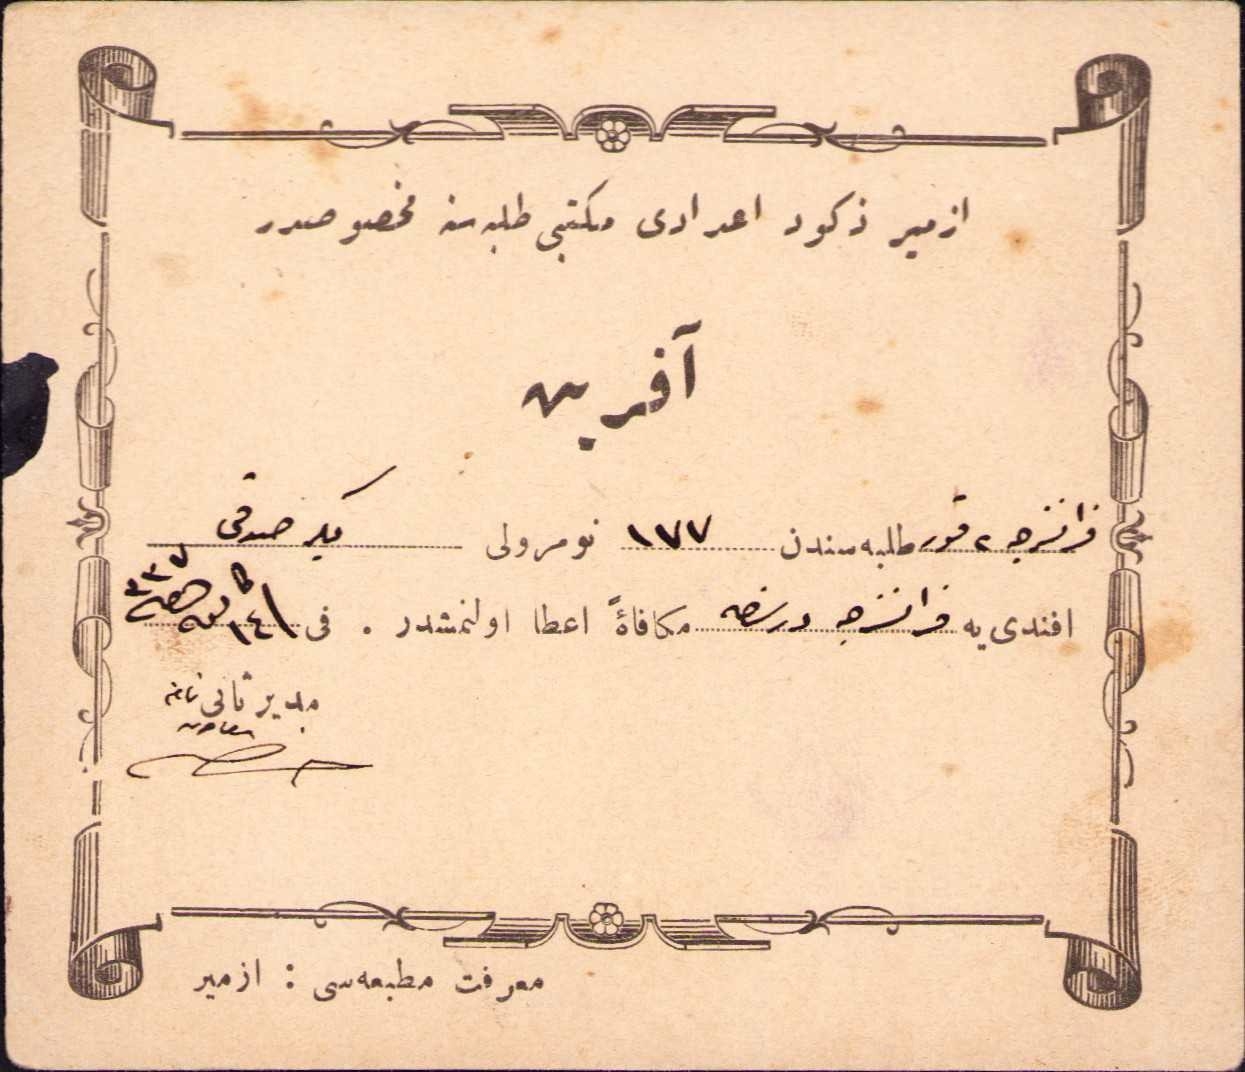 ازمیر ذكور اعدادی مكتبی طلبه سنه مخصوصدر
آفرین
فرانسزجه ٢ قور طلبه‌سندن ١٧٧ نومرولی بكر صدقی
افندی یه فرانسزجه درسنده مكافاةً اعطا اولنمشدر . فی ١٤ ٣٣٧
مدیر ثانی
معاون
معرفت مطبعه‌سی : ازمیر